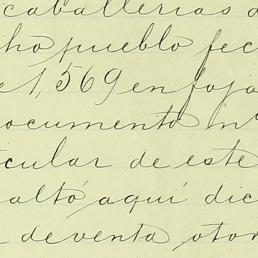 caballerias d
cho pueblo fec
e 1,569 en foja
ocumento nº
icular de este
altó aquí dic
de venta otor